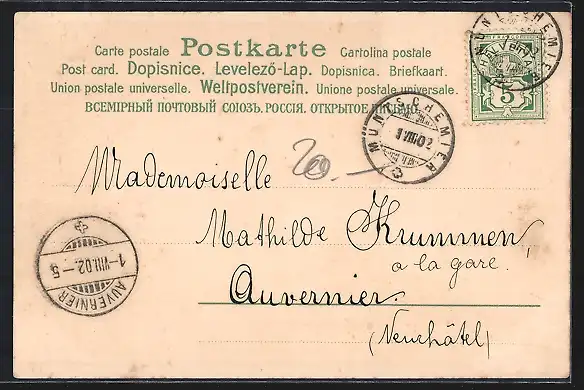 Carte postale Postkarte Cartolina postale
Post card. Dopisnice. Levelező-Lap. Dopisnica. Briefkaart.
Union postale universelle. Weltpostverein. Unione postale universale.
ВСЕМІРНЫЙ ПОЧТОВЫЙ СОЮЗЪ. РОССІЯ. ОТКРЫТОЕ ПИСЬМО.
HELVETIA
5
MÜNTSCHEMIER
MÜNTSCHEMIER
1 VIII 02
20.—
Mademoiselle
Mathilde Krummen,
a la gare.
Auvernier.
(Neuchâtel)
1-VIII.02-5
AUVERNIER